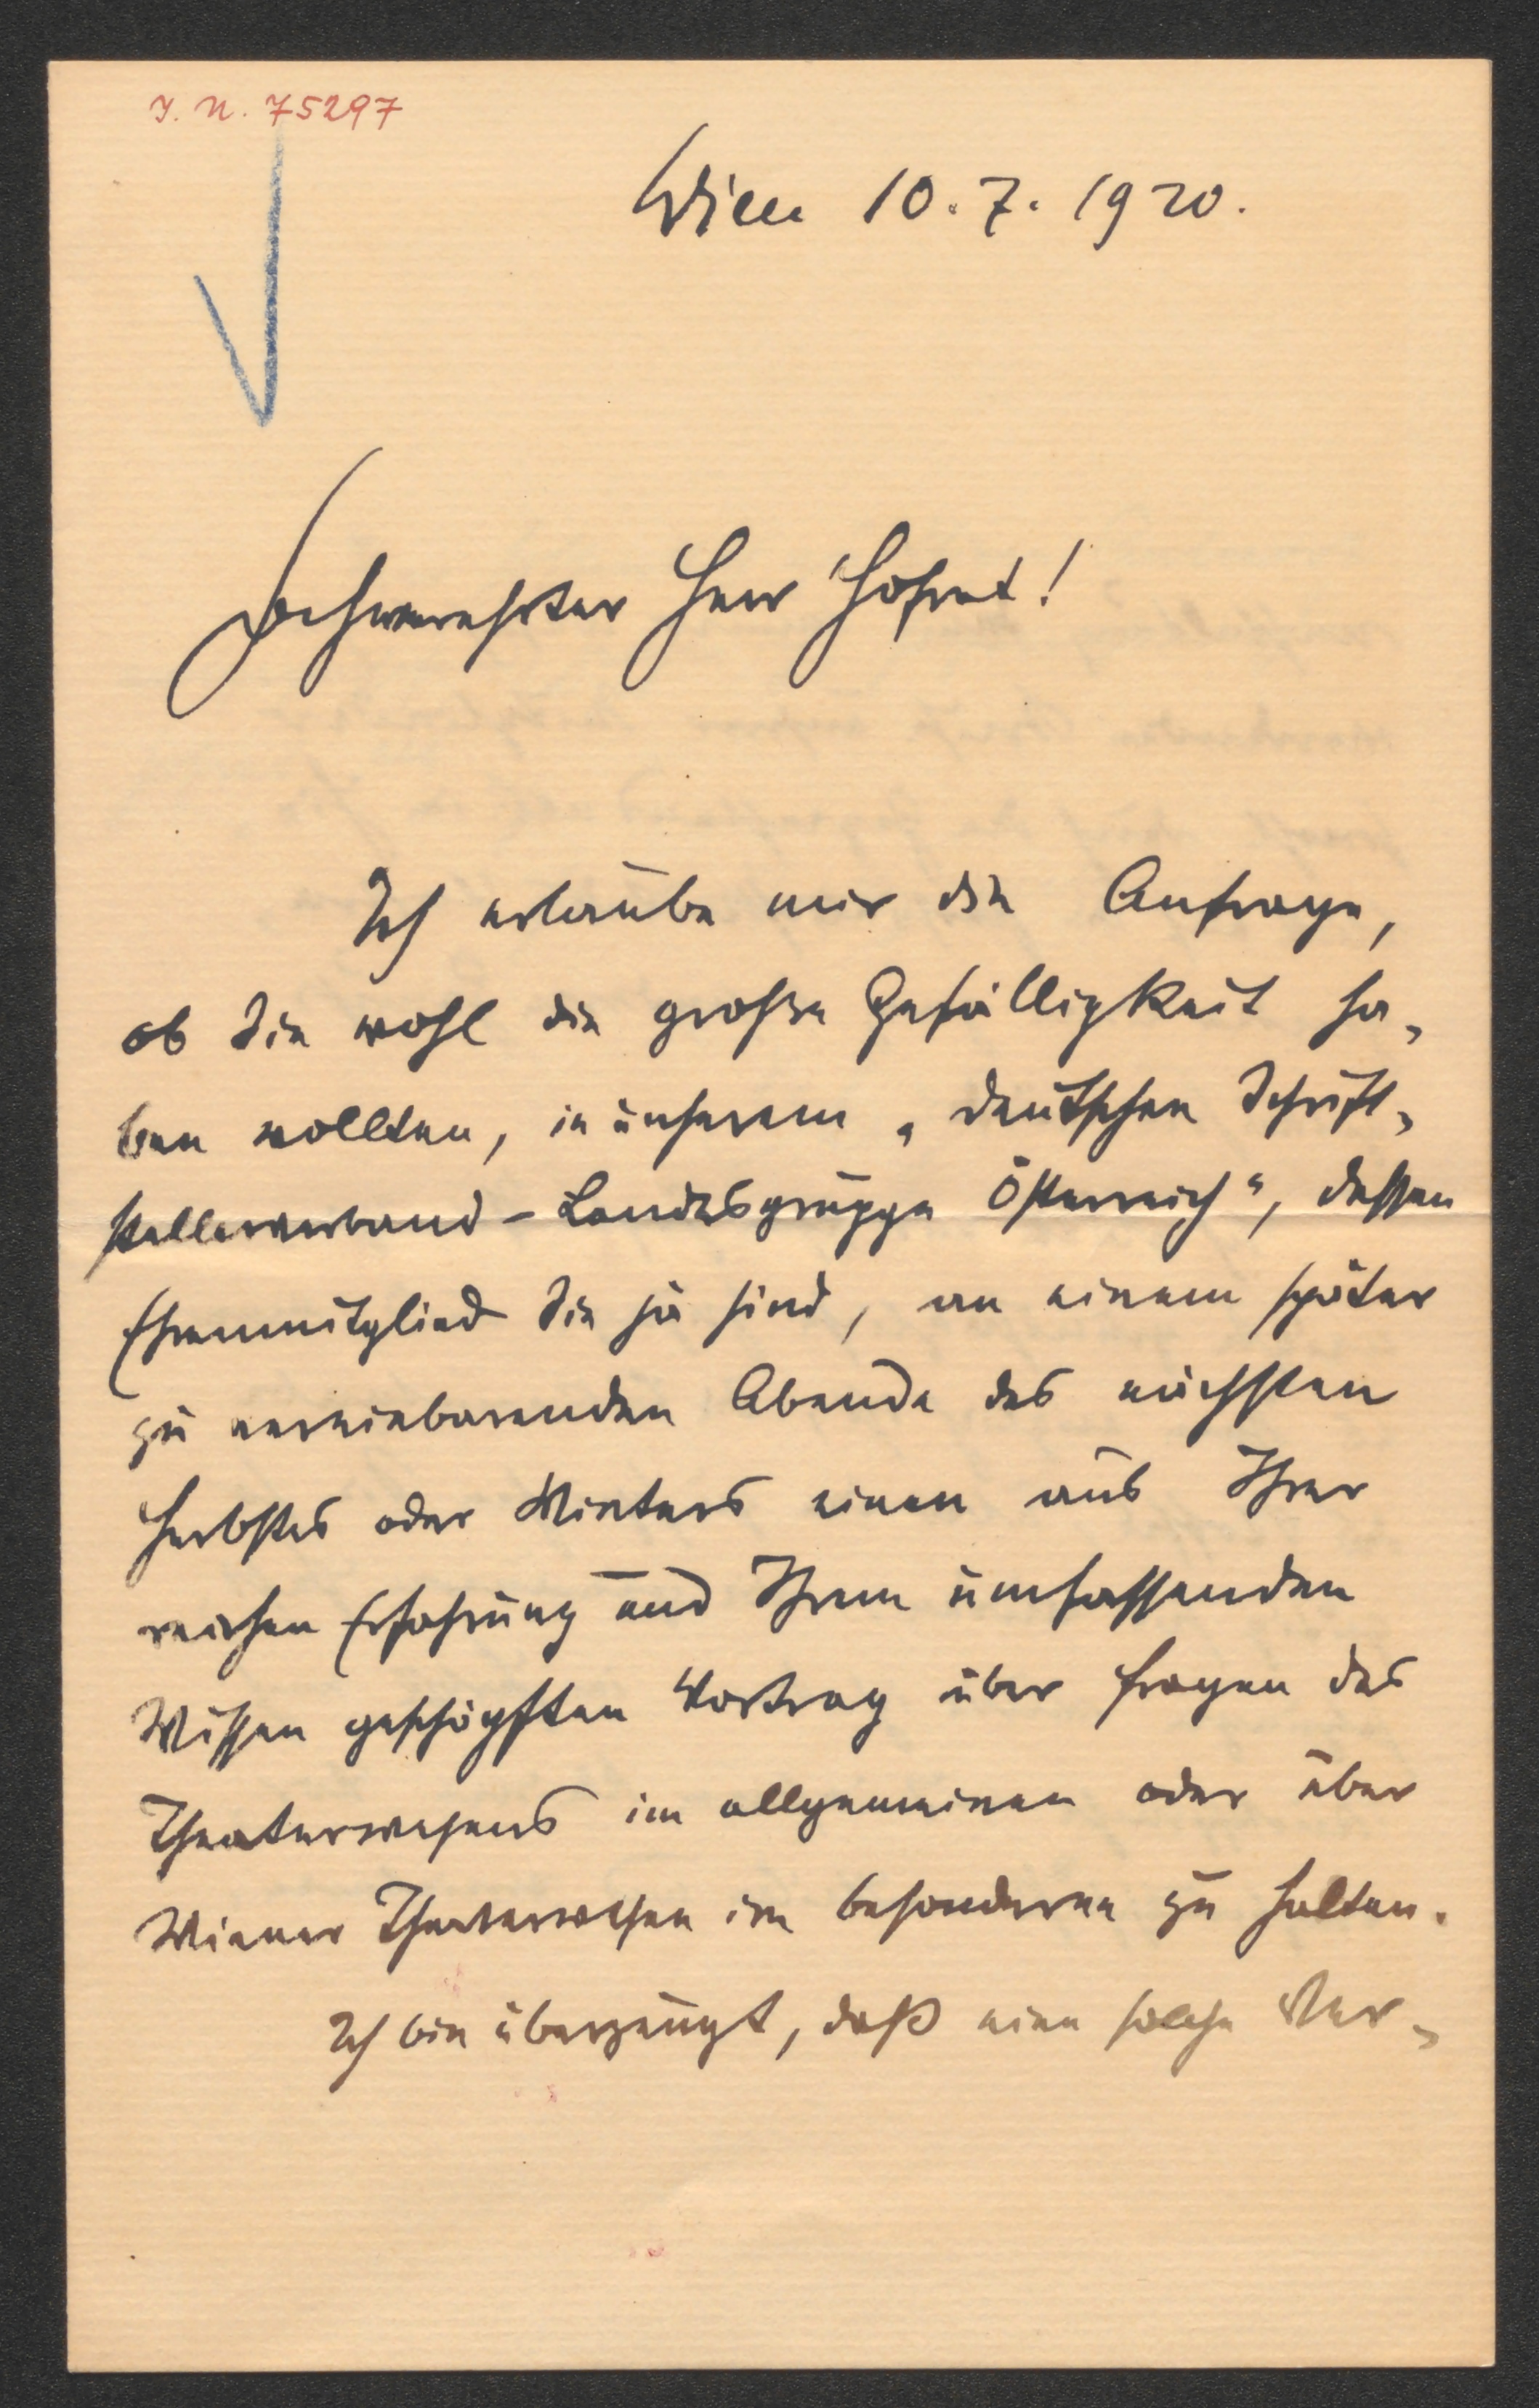 I. N. 75297
Wien 10. 7. 1920.
Hochverehrter Herr Hofrat!
Ich erlaube mir die Anfrage,
ob Sie wohl die große Gefälligkeit ha-
ben wollten, in unserem „Deutschen Schrift-
stellerverband – Landesgruppe Österreich“, dessen
Ehrenmitglied Sie ja sind, an einem später
zu vereinbarenden Abende des nächsten
Herbstes oder Winters einen aus Ihrer
reichen Erfahrung und Ihrem umfassenden
Wissen geschöpften Vortrag über Fragen des
Theaterwesens im allgemeinen oder über
Wiener Theaterwesen im besonderen zu halten.
Ich bin überzeugt, daß eine solche Ver-